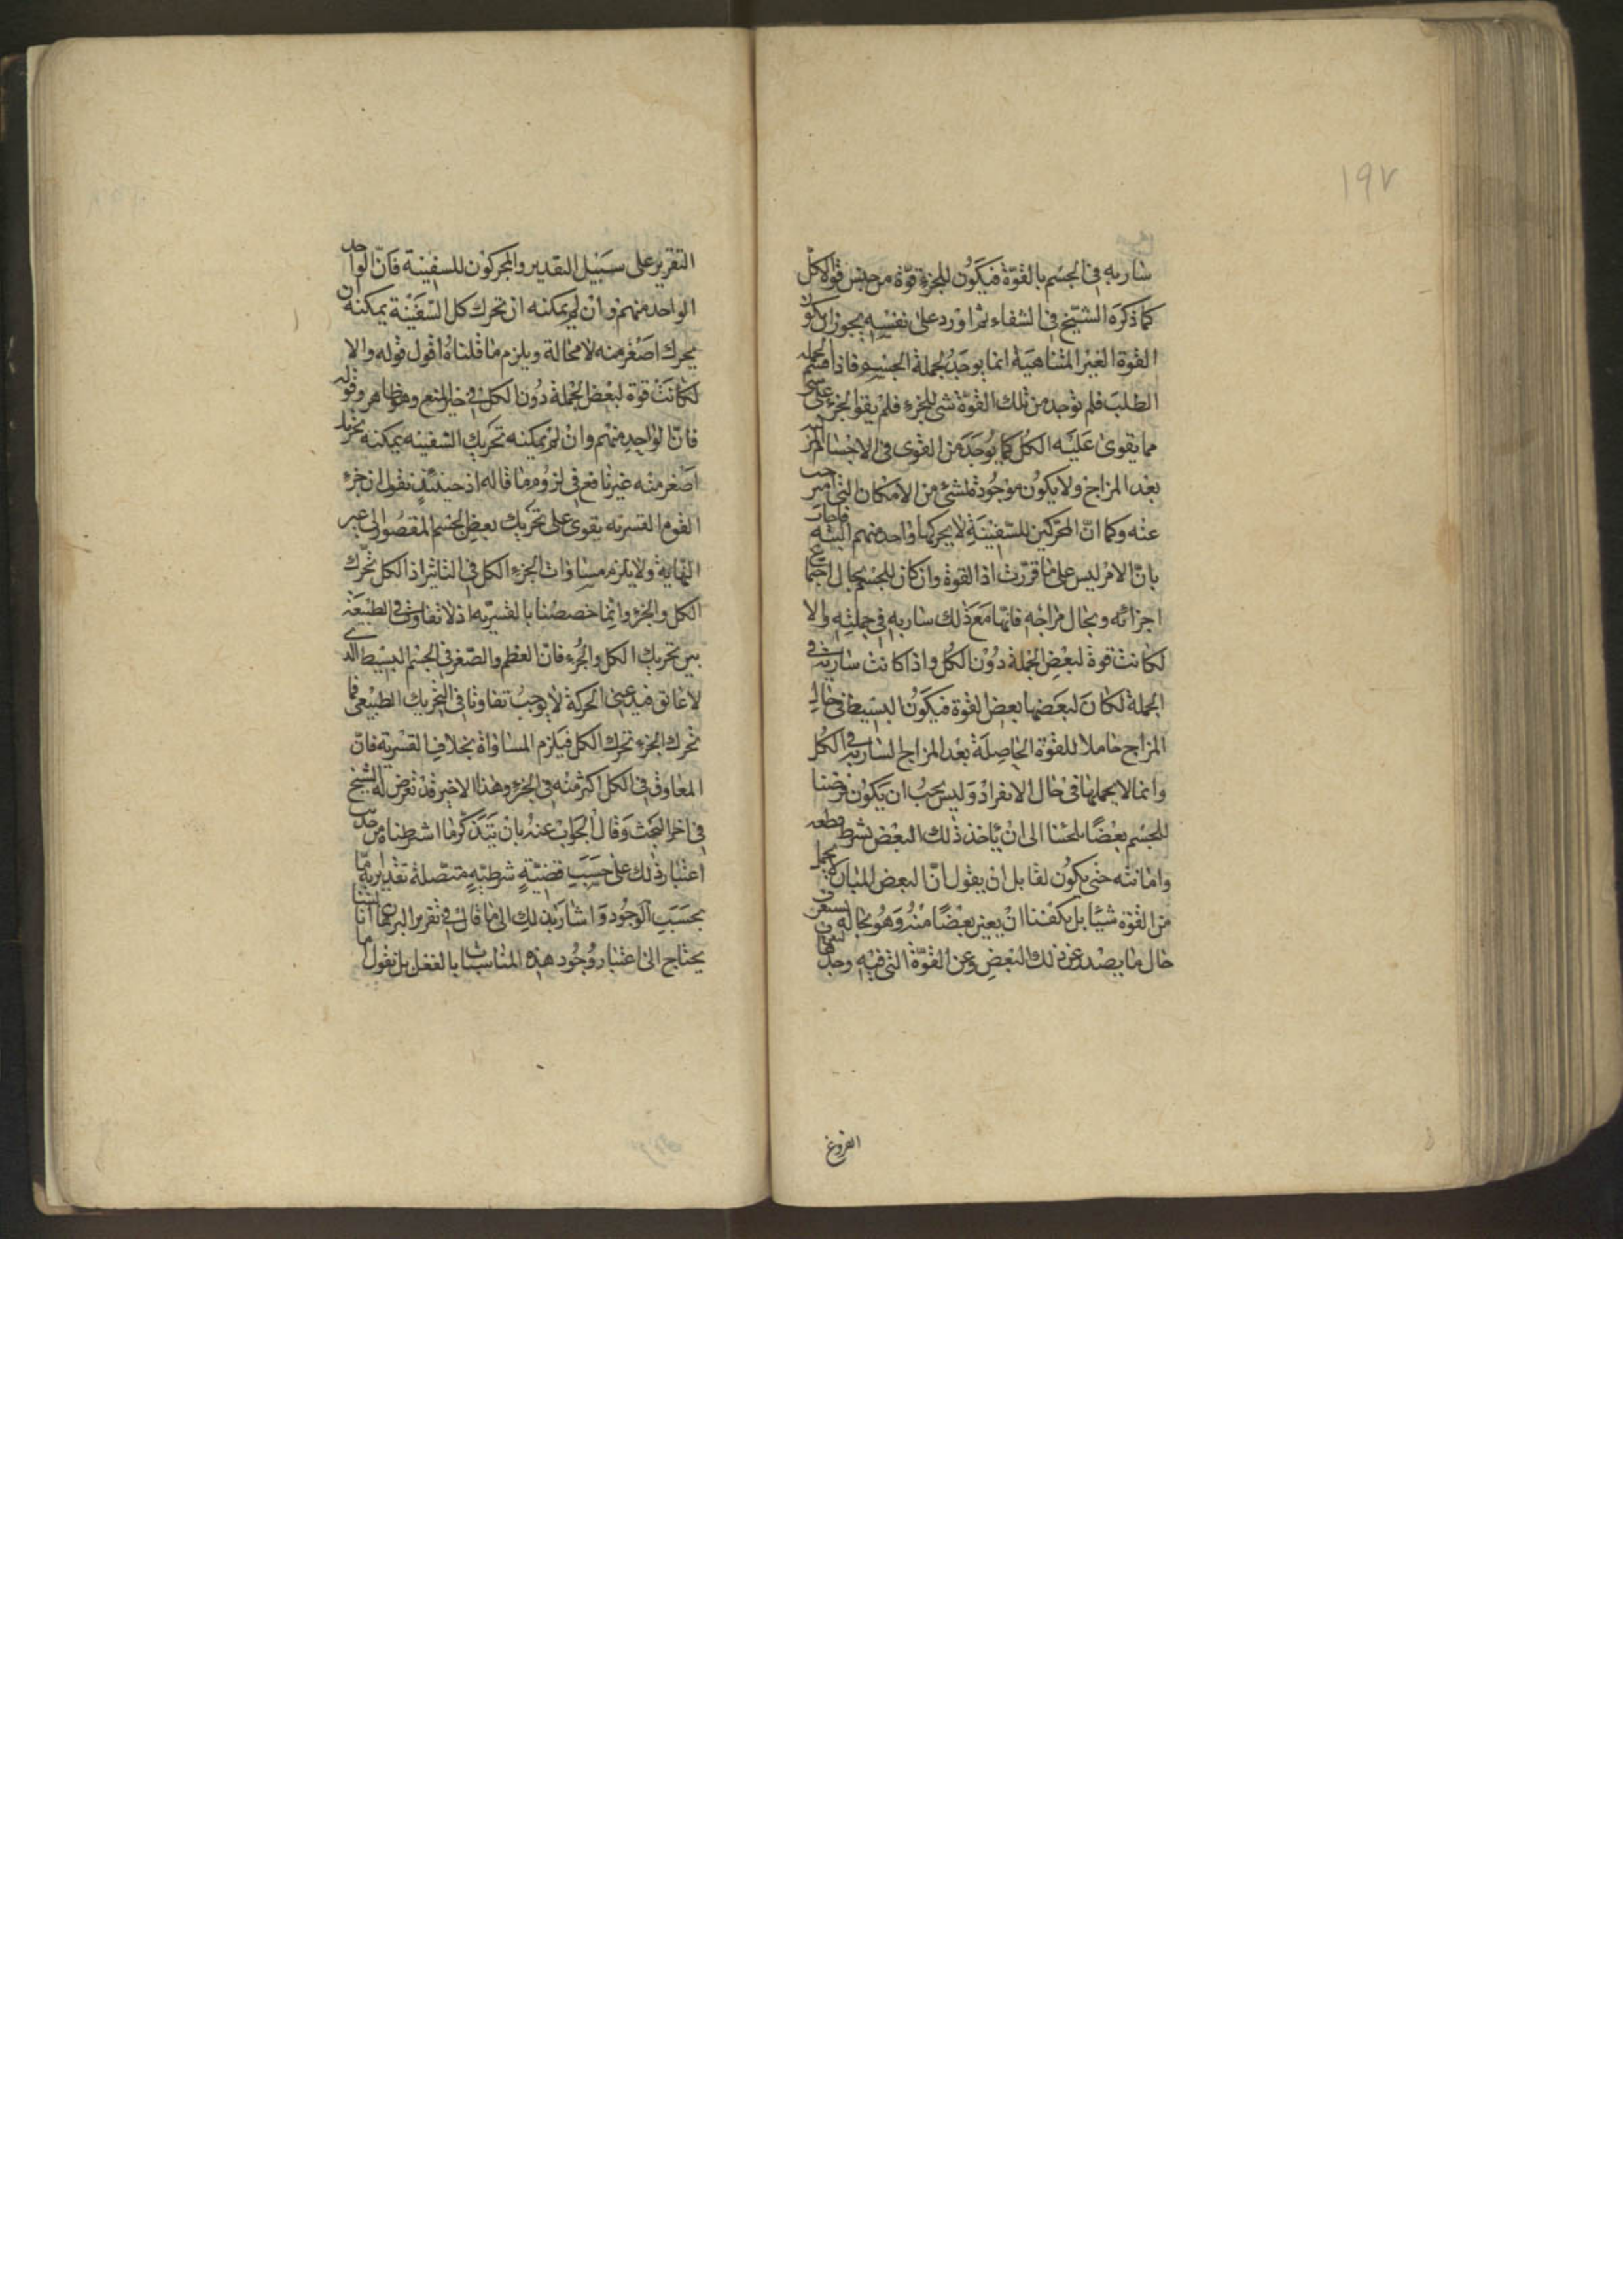 ١٩٧
ساريه فى الجسم بالقوّة فيكون للجزء قوّة من جنس قوة الكلّ
كما ذكره الشيخ فى الشفاء ثم اورد على نفسه يجوز ان يكون
القوة الغير المتناهية انما يوجد لجملة الجسم فاذا قسم الجملة
الطلب فلم توجد من تلك القوّة شئ للجزء فلم يقو الجزء على شئ
مما يقوى عليه الكل كما يوجد من القوى فى الاجسام
بعد المزاج ولا يكون موجودة لشئ من الامكان التى امتزجت
عنه وكما انّ المحرّكين للسّفينة لا يحركها واحد منهم البتّه فاجاب
بانّ الامر ليس على ما قررت اذ القوة وان كان للجسم بحال اجتماع
اجزائه وبحال مزاجه فانها مع ذلك ساريه فى جملته والا
لكانت قوة لبعض الجملة دون الكل واذا كانت سارية فى
الجملة لكان لبعضها بعض القوة فيكون البسيط فى حال
المزاج حاملا للقوة الحاصلة بعد المزاج السارية فى الكل
وانما لا يحملها فى حال الانفراد وليس يجب ان يكون فرضنا
للجسم بعضًا ملحئنا الى ان ياخذ ذلك البعض بشرط قطعه
وامانته حتى يكون لقابل ان يقول انّ البعض المبان لا يحمل
من القوة شيئا بل يكفننا ان يعين بعضًا منه وهو بحاله
حال ما يصدر عن ذلك البعض وعن القوّة التى فيه وحدها
الفروغ
التقرير على سبيل التقدير والمحركون للسفينة فانّ الواحد
الواحد منهم وان لم يمكنه ان تحرك كل السّفينة يمكنه ان
يحرك اصغر منه لا محالة ويلزم ما قلناه اقول قوله والا
لكانت قوة لبعض الجملة دون الكل فى حيز المنع وهو ظاهر وقوله
فانّ الواحد منهم وان لم يمكنه تحريك السّفينه يمكنه تحريك
اصغر منه غير نافع فى لزوم ما قاله اذ حينئذ نقول ان جزء
القوه القسريه يقوى على تحريك بعض الجسم المقصور الى غير
النّهاية ولا يلزم مساوات الجزء الكل فى التاثير اذ الكل تحّرك
الكل والجزء وانما خصصنا بالقسريّه اذ لا تفاوت فى الطبيعة
بين تحريك الكل والجزء فانّ العظم والصّغر فى الجسم البسيط الذى
لا عائق فيه عن الحركة لا يوجب تفاوتا فى التحريك الطبيعى فما
تحرك الجزء تحرك الكل فيلزم المساواة بخلاف القسريّة فانّ
المعاوق فى الكل اكثر منه فى الجزء وهذا الاخير قد تعرض له الشيخ
فى اخر البحث وقال الجواب عنه بان يتذكر ما اشرطناه من حديث
اعتبار ذلك على حسب قضيّة شرطيّة متّصلة تقديريّة
بحسب الوجود و اشار بذلك الى ما قال فى تقرير البرهان انا لسنا
يحتاج الى اعتبار وجود هذه المناسبات بالفعل بل نقول